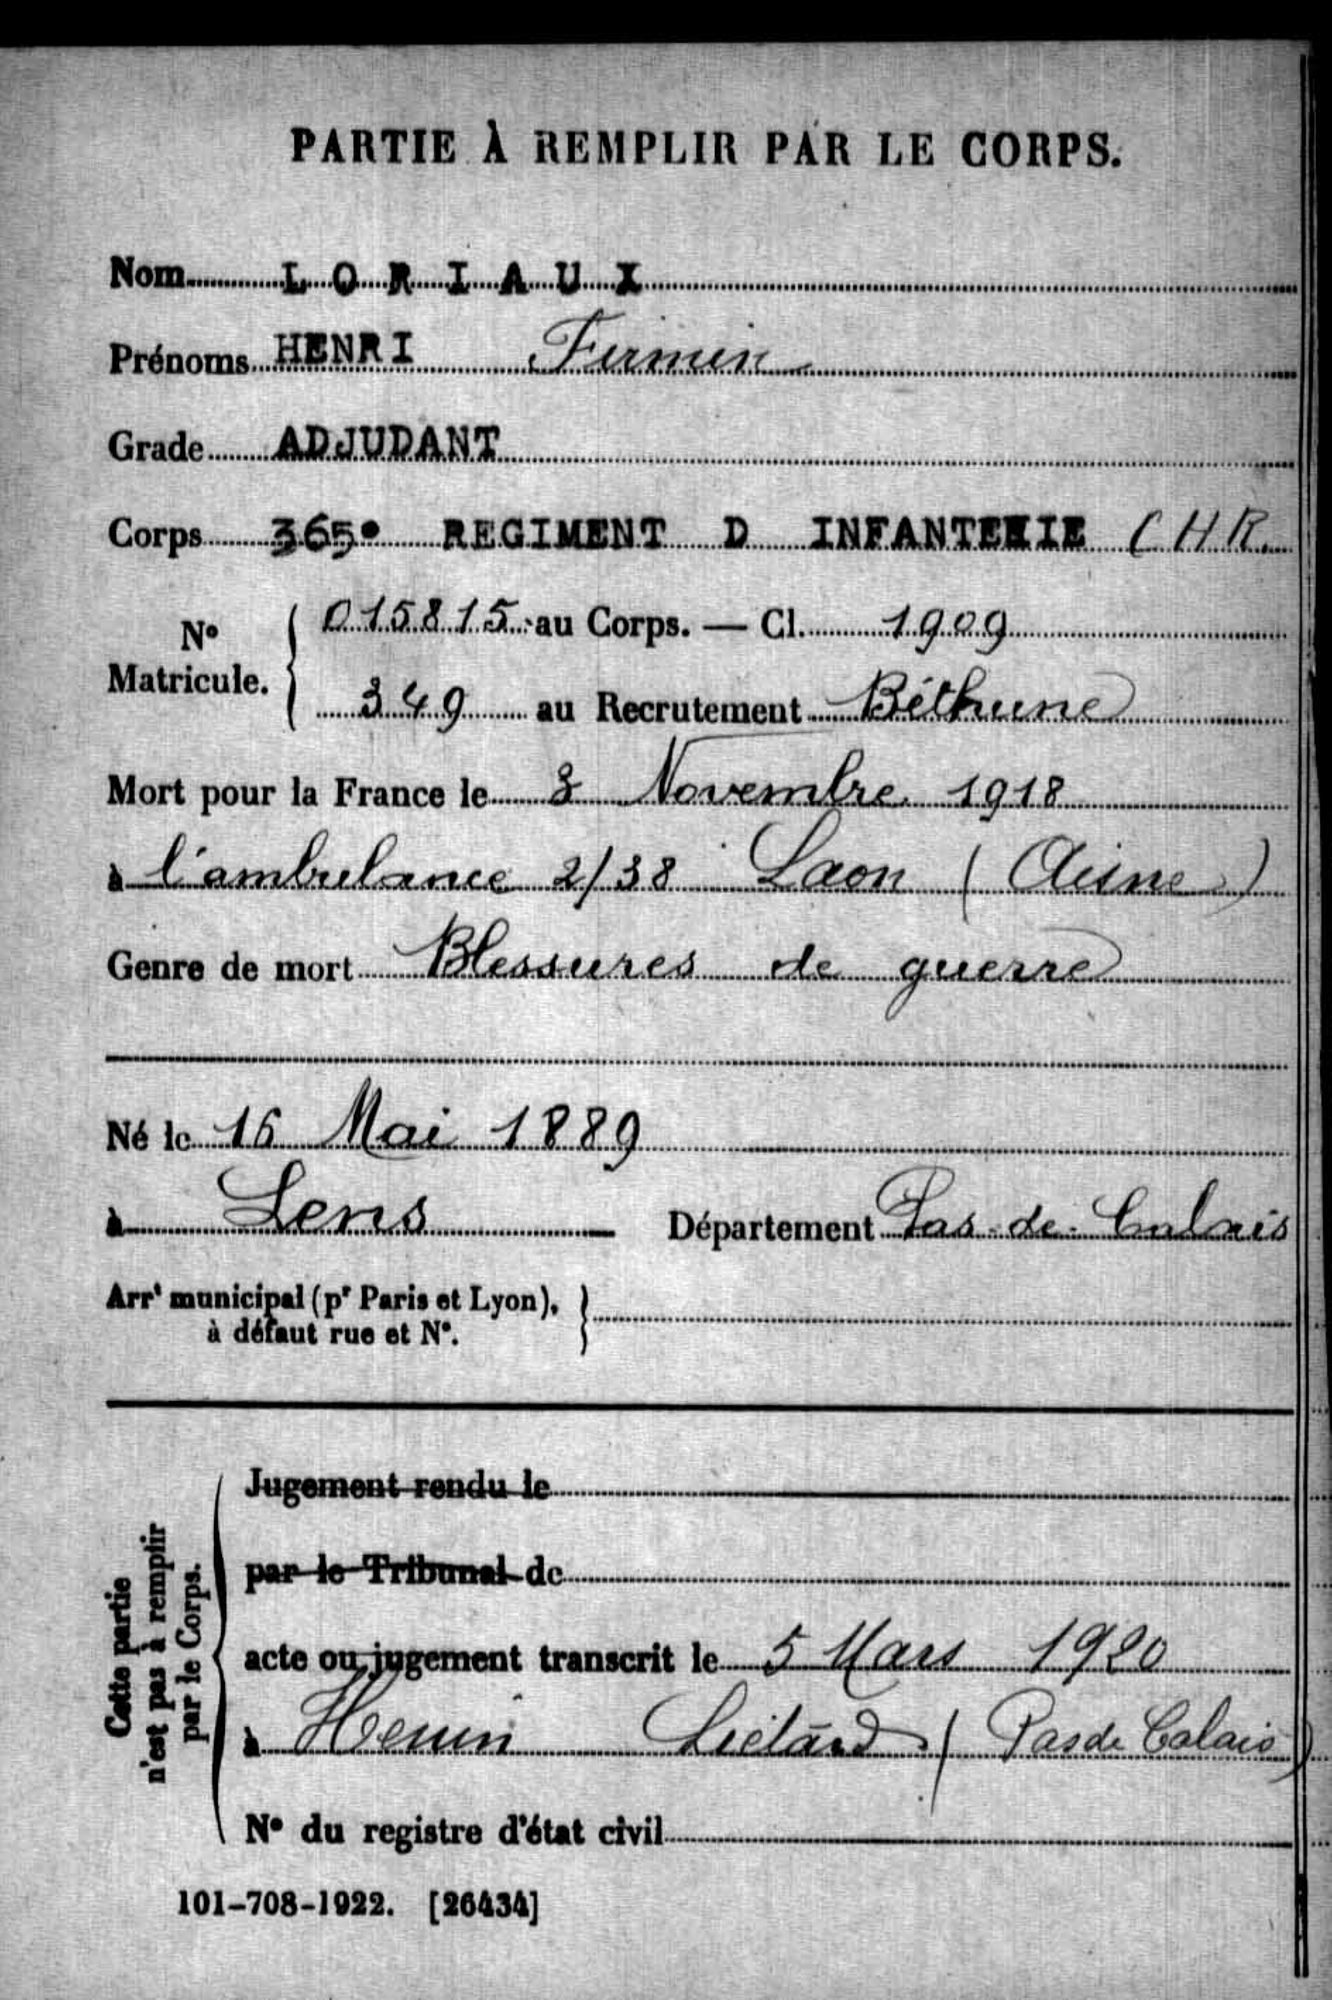 PARTIE À REMPLIR PAR LE CORPS.
Nom LORIAUX
Prénoms HENRI Firmin
Grade ADJUDANT
Corps 365e REGIMENT D INFANTERIE CHR.
No Matricule. 015815 au Corps. — Cl. 1909
349 au Recrutement Béthune
Mort pour la France le 3 Novembre 1918
à l'ambulance 2/38 Laon (Aisne)
Genre de mort Blessures de guerre
Né le 16 Mai 1889
à Lens Département Pas-de-Calais
Arrt municipal (pr Paris et Lyon), à défaut rue et No.
Cette partie n'est pas à remplir par le Corps.
Jugement rendu le
par le Tribunal de
acte ou jugement transcrit le 5 Mars 1920
à Henin Liétard (Pas de Calais)
No du registre d'état civil
101-708-1922. [26434]